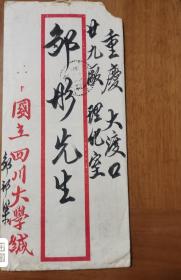 重慶 大渡口
廿九廠 理化室
邹彤先生
國立四川大學緘